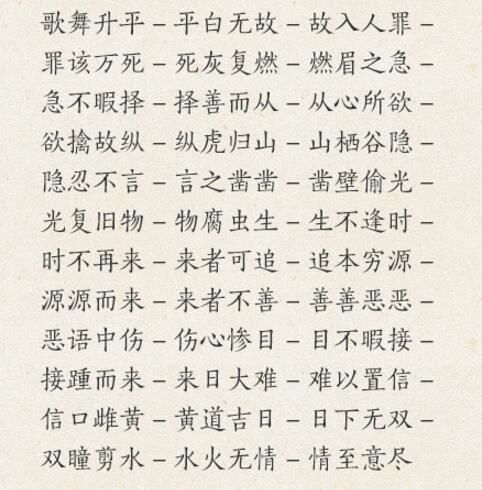 歌舞升平–平白无故–故入人罪–
罪该万死–死灰复燃–燃眉之急–
急不暇择–择善而从–从心所欲–
欲擒故纵–纵虎归山–山栖谷隐–
隐忍不言–言之凿凿–凿壁偷光–
光复旧物–物腐虫生–生不逢时–
时不再来–来者可追–追本穷源–
源源而来–来者不善–善善恶恶–
恶语中伤–伤心惨目–目不暇接–
接踵而来–来日大难–难以置信–
信口雌黄–黄道吉日–日下无双–
双瞳剪水–水火无情–情至意尽